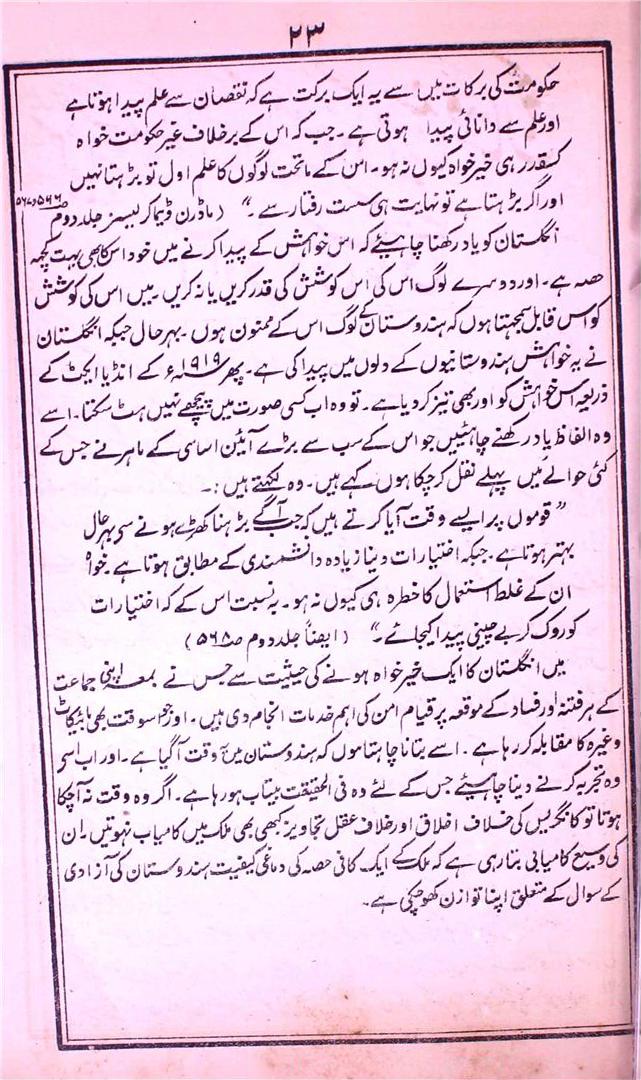 ۲۳
حکومت کی برکات میں سے یہ ایک برکت ہے کہ نقصان سے علم پیدا ہوتا ہے
اور علم سے دانائی پیدا ہوتی ہے۔ جب کہ اس کے برخلاف غیر حکومت خواہ
کسقدر ہی خیر خواہ کیوں نہ ہو۔ اس کے ماتحت لوگوں کا علم اول تو بڑہتا نہیں
اور اگر بڑہتا ہے تو نہایت ہی سست رفتار سے۔" (ماڈرن ڈیماکریسیز جلد دوم صہ ۵۶۶ و ۵۶۷
انگلستان کو یاد رکھنا چاہیئے کہ اس خواہش کے پیدا کرنے میں خود اس کا بھی بہت کچھ
حصہ ہے۔ اور دوسرے لوگ اس کی اس کوشش کی قدر کریں یا نہ کریں۔ میں اس کی کوشش
کو اس قابل سمجہتا ہوں کہ ہندوستان کے لوگ اس کے ممنون ہوں۔ بہر حال جبکہ انگلستان
نے یہ خواہش ہندوستانیوں کے دلوں میں پیدا کی ہے۔ پھر ۱۹۱۹ء کے انڈیا ایجٹ کے
ذریعہ اس خواہش کو اور بھی تیز کر دیا ہے۔ تو وہ اب کسی صورت میں پیچھے نہیں ہٹ سکتا۔ اسے
وہ الفاظ یاد رکھنے چاہئیں جو اس کے سب سے بڑے آئین اساسی کے ماہر نے جس کے
کئی حوالے میں پہلے نقل کر چکا ہوں کہے ہیں۔ وہ لکھتے ہیں:۔
"قوموں پر ایسے وقت آیا کرتے ہیں کہ جب آگے بڑہنا کھڑے ہونے سے بہر حال
بہتر ہوتا ہے۔ جبکہ اختیارات دینا زیادہ دانشمندی کے مطابق ہوتا ہے خواہ
ان کے غلط استعمال کا خطرہ ہی کیوں نہ ہو۔ بہ نسبت اس کے کہ اختیارات
کو روک کر بے چینی پیدا کیجائے۔" (ایضاً جلد دوم صہ ۵۶۸)
میں انگلستان کا ایک خیر خواہ ہونے کی حیثیت سے جس نے بمعہ اپنی جماعت
کے ہر فتنہ اور فساد کے موقعہ پر قیام امن کی اہم خدمات انجام دی ہیں۔ اور جو اسوقت بھی بائیکاٹ
وغیرہ کا مقابلہ کر رہا ہے۔ اسے بتانا چاہتا ہوں کہ ہندوستان میں وقت آگیا ہے۔ اور اب اسے
وہ تجربہ کرنے دینا چاہیئے جس کے لئے وہ فی الحقیقت بیتاب ہو رہا ہے۔ اگر وہ وقت نہ آ چکا
ہوتا تو کانگریس کی خلاف اخلاق اور خلاف عقل تجاویز کبھی بھی ملک میں کامیاب نہوتیں۔ ان
کی وسیع کامیابی بتا رہی ہے کہ ملک کے ایک کافی حصہ کی دماغی کیفیت ہندوستان کی آزادی
کے سوال کے متعلق اپنا توازن کھو چکی ہے۔